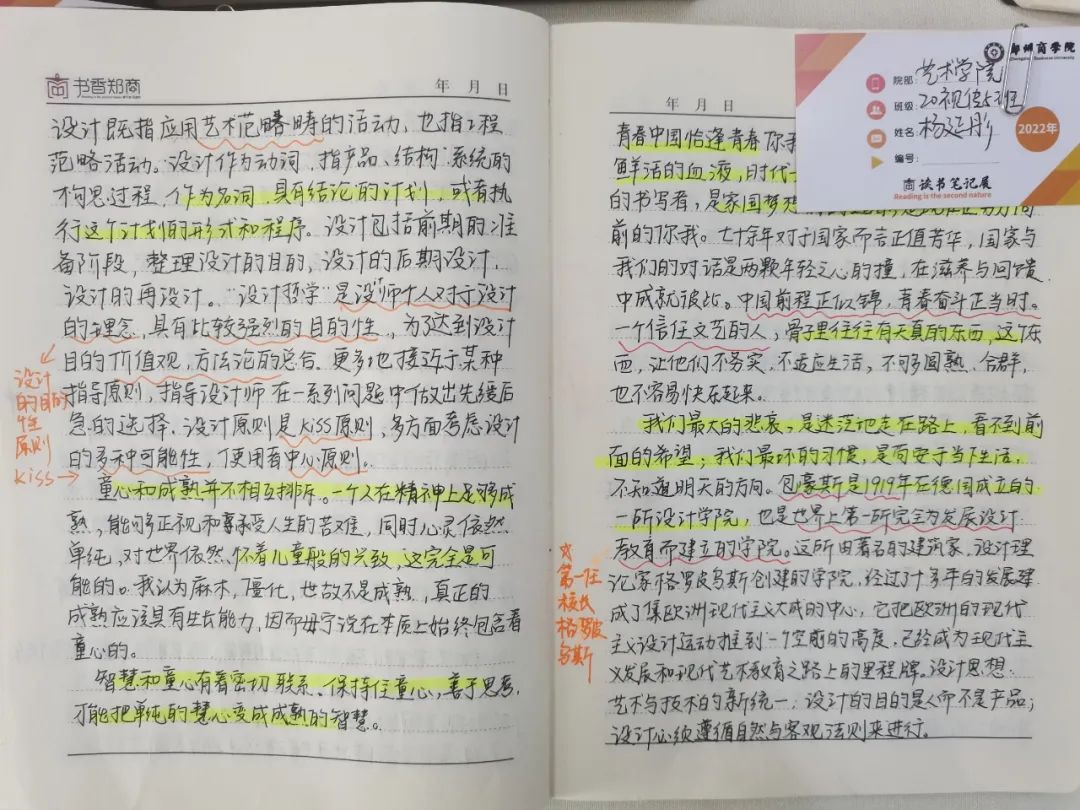 书香郑商
年 月 日
设计既指应用艺术范畴畴的活动，也指工程
范略活动。设计作为动词，指产品、结构、系统的
构思过程，作为名词，具有结论的计划，或者执
行这个计划的形式和程序。设计包括前期的准
备阶段，整理设计的目的，设计的后期设计，
设计的再设计。"设计哲学"是设师个人对于设计
的理念，具有比较强烈的目的性，为了达到设计
目的价值观，方法论的总合。更多也接近于某种
指导原则，指导设计师在一系列问题中做出先缓后
急的选择。设计原则是KiSS原则，多方面考虑设计
的多种可能性，使用者中心原则。
童心和成熟并不相互排斥。一个人在精神上足够成
熟，能够正视和承受人生的苦难，同时心灵依然
单纯，对世界依然怀着儿童般的兴致，这完全是可
能的。我认为麻木，僵化，世故不是成熟，真正的
成熟应该具有生长能力，因而毋宁说在本质上始终包含着
童心的。
智慧和童心有着密切联系、保持住童心，善于思考，
才能把单纯的慧心变成成熟的智慧。
设计
的目的
性
原则
kiss→
年 月 日
青春中国恰逢青春你我
鲜活的血液，时代一
的书写者，是家国梦想
前的你我。七十余年对于国家而言正值芳华，国家与
我们的对话是两颗年轻之心的撞，在滋养与回馈
中成就彼此。中国前程正似锦，青春奋斗正当时。
一个信任文艺的人，骨子里往往有天真的东西，这个东
西，让他们不务实，不适应生活，不够圆熟、合群，
也不容易快乐起来。
我们最大的悲哀，是迷茫地走在路上，看不到前
面的希望；我们最坏的习惯，是苟安于当下生活，
不知道明天的方向。包豪斯是1919年在德国成立的
一所设计学院，也是世界上第一所完全为发展设计
教育而建立的学院。这所由著名的建筑家、设计理
论家格罗皮乌斯创建的学院，经过了十多年的发展建
成了集欧洲现代主义大成的中心，它把欧洲的现代
主义设计运动推到一个空前的高度，已经成为现代主
义发展和现代艺术教育之路上的里程牌。设计思想：
艺术与技术的新统一；设计的目的是人而不是产品；
设计必须遵循自然与客观法则来进行。
☆
第一任
校长
格罗皮
乌斯
郑州商学院
院部：艺术学院
班级：20视传5班
姓名：杨延彤
编号：
2022年
读书笔记展
Reading is the second nature